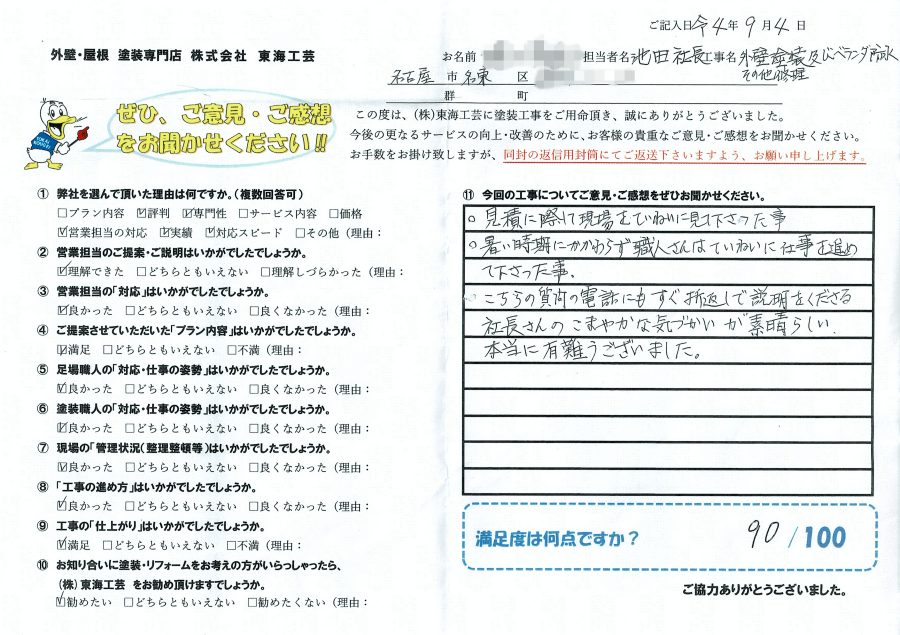 ご記入日 令4年 9月4日
外壁・屋根 塗装専門店 株式会社 東海工芸
お名前 担当者名 池田社長 工事名 外壁塗装及びベランダ防水
その他修理
名古屋 市 名東 区
群 町
ぜひ、ご意見・ご感想
をお聞かせください!!
この度は、(株)東海工芸に塗装工事をご用命頂き、誠にありがとうございました。
今後の更なるサービスの向上・改善のために、お客様の貴重なご意見・ご感想をお聞かせください。
お手数をお掛け致しますが、同封の返信用封筒にてご返送下さいますよう、お願い申し上げます。
① 弊社を選んで頂いた理由は何ですか。(複数回答可)
□プラン内容 ☑評判 ☑専門性 □サービス内容 □価格
☑営業担当の対応 ☑実績 ☑対応スピード □その他(理由:
② 営業担当のご提案・ご説明はいかがでしたでしょうか。
☑理解できた □どちらともいえない □理解しづらかった(理由:
③ 営業担当の「対応」はいかがでしたでしょうか。
☑良かった □どちらともいえない □良くなかった(理由:
④ ご提案させていただいた「プラン内容」はいかがでしたでしょうか。
☑満足 □どちらともいえない □不満(理由:
⑤ 足場職人の「対応・仕事の姿勢」はいかがでしたでしょうか。
☑良かった □どちらともいえない □良くなかった(理由:
⑥ 塗装職人の「対応・仕事の姿勢」はいかがでしたでしょうか。
☑良かった □どちらともいえない □良くなかった(理由:
⑦ 現場の「管理状況(整理整頓等)はいかがでしたでしょうか。
☑良かった □どちらともいえない □良くなかった(理由:
⑧ 「工事の進め方」はいかがでしたでしょうか。
☑良かった □どちらともいえない □良くなかった(理由:
⑨ 工事の「仕上がり」はいかがでしたでしょうか。
☑満足 □どちらともいえない □不満(理由:
⑩ お知り合いに塗装・リフォームをお考えの方がいらっしゃったら、
(株)東海工芸 をお勧め頂けますでしょうか。
☑勧めたい □どちらともいえない □勧めたくない(理由:
⑪ 今回の工事についてご意見・ご感想をぜひお聞かせください。
○見積に際して現場をていねいに見て下さった事
○暑い時期にかかわらず職人さんはていねいに仕事を進め
て下さった事.
○こちらの質問の電話にもすぐ折返しで説明をくださる
社長さんのこまやかな気づかいが素晴らしい.
本当に有難うございました。
満足度は何点ですか? 90/100
ご協力ありがとうございました。